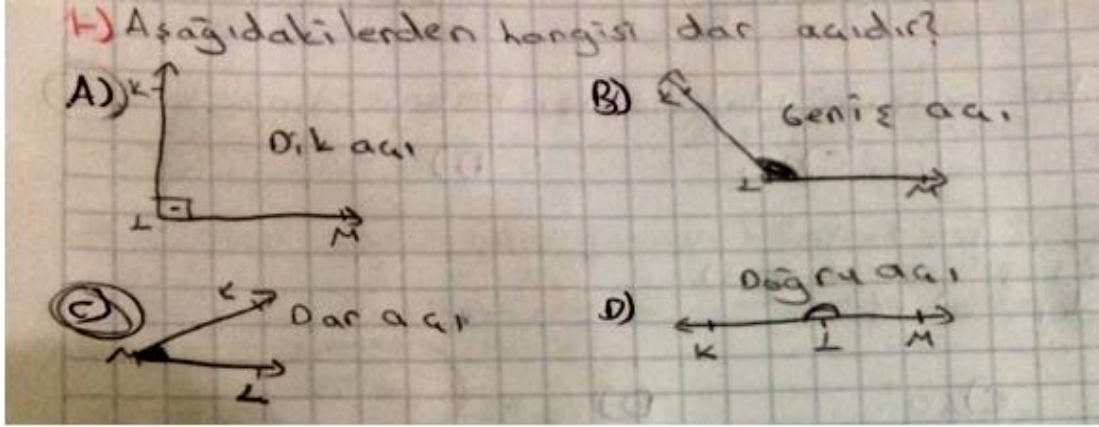 1-) Aşağıdakilerden hangisi dar açıdır?
A) K
Dik açı
L M
B) K
Geniş açı
L M
C) K
Dar açı
M
L
D) Doğru açı
K L M